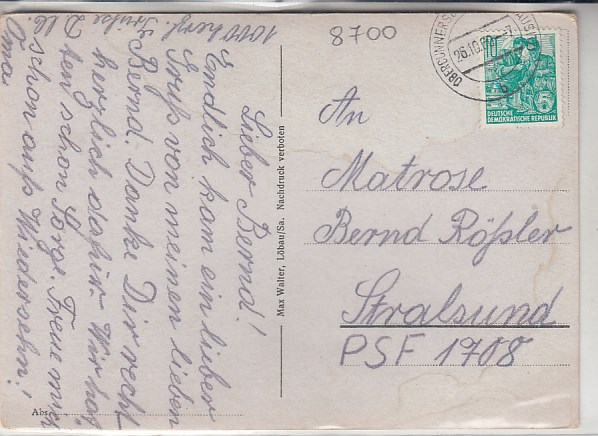 8700
OBERCUNNERS
26.10.
b
DEUTSCHE
DEMOKRATISCHE REPUBLIK
5
An
Matrose
Bernd Rößler
Stralsund
PSF 1708
Max Walter, Löbau/Sa. Nachdruck verboten
Lieber Bernd!
Endlich kam ein lieber
Gruß von meinen lieben
Bernd. Danke Dir recht
herzlich dafür. Wir hat
ten schon Sorge. Freue mich
schon aufs Wiedersehn!
Oma.
1000 herzl.
Grüße D. lb.
Abs.